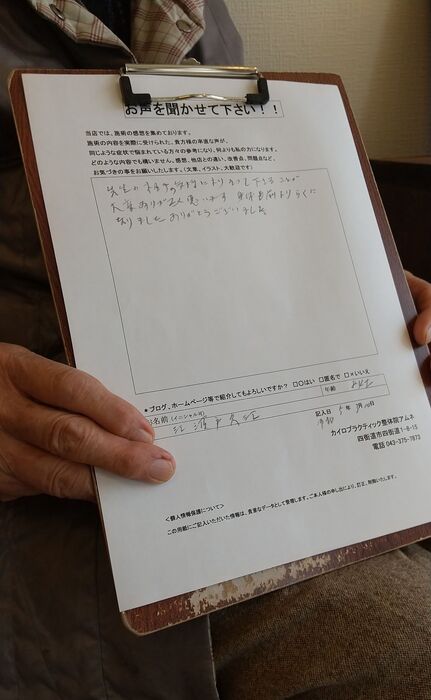 お声を聞かせて下さい！！
当店では、施術の感想を集めております。
施術の内容を実際に受けられた、貴方様の率直な声が、
同じような症状で悩まれている方々の参考になり、何よりも私の力になります。
どのような内容でも構いません。感想、他店との違い、改善点、問題点など、
お気づきの事をお願いしたします。（文章、イラスト、大歓迎）
先生が
大変ありがたく思います 身体も前よりらくに
なりました ありがとうございました
★ブログ、ホームページ等で紹介してもよろしいですか？ □○はい □匿名で □×いいえ
お名前（イニシャル可）
年齢
記入日 年 月 日
カイロプラクティック整体院アムネ
四街道市四街道1-8-15
電話 043-375-7873
＜個人情報保護について＞
この用紙にご記入いただいた情報は、貴重なデータとして管理します。ご本人様の申し出により、訂正、削除いたします。